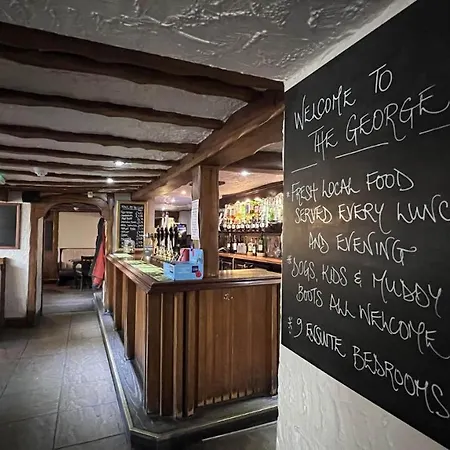 WELCOME TO
THE GEORGE
* FRESH LOCAL FOOD
SERVED EVERY LUNCH
AND EVENING
* DOGS, KIDS & MUDDY
BOOTS ALL WELCOME
* 9 ENSUITE BEDROOMS